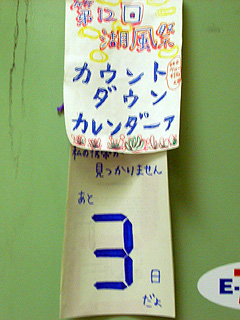 第12回
湖風祭
カウント
ダウン
カレンダーァ
見つかりません
あと
3
日
だよ
E-